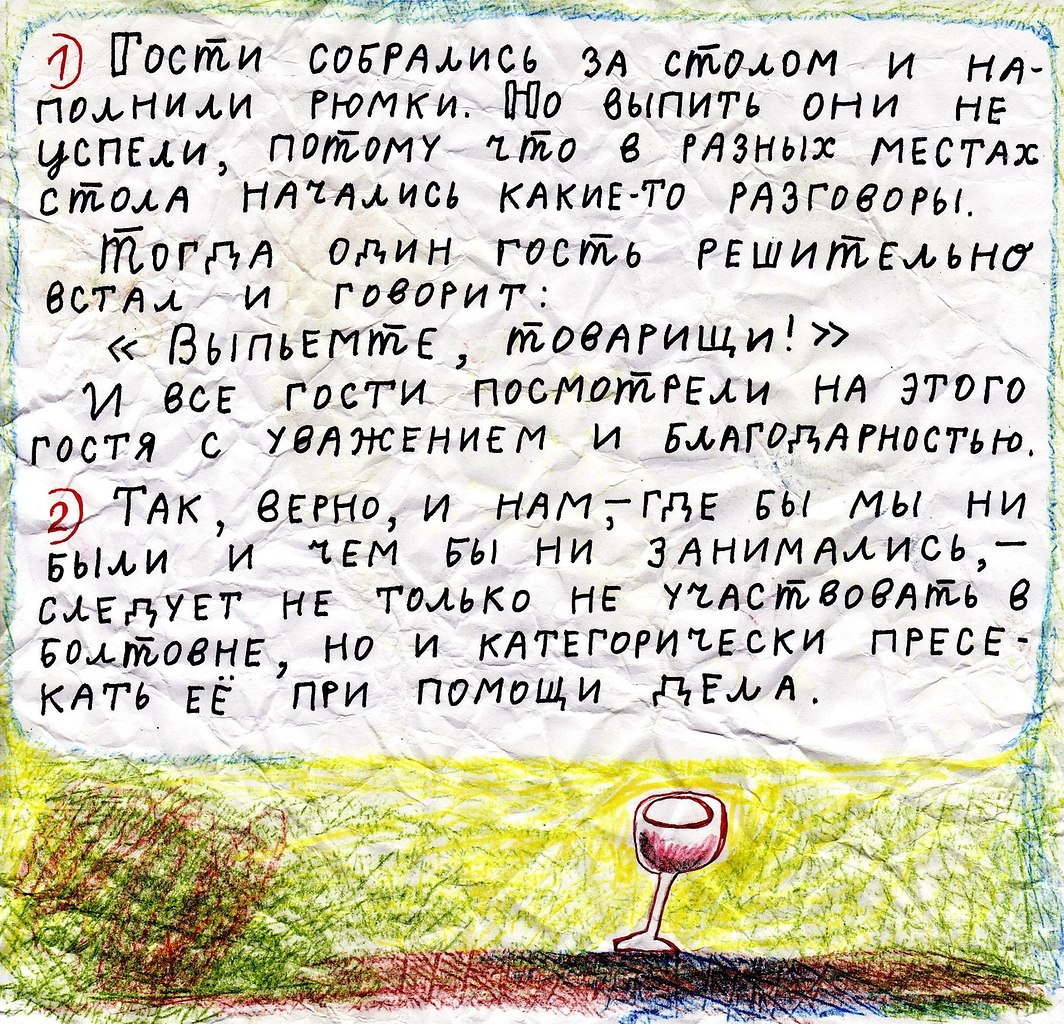 1) Гости собрались за столом и на-
полнили рюмки. Но выпить они не
успели, потому что в разных местах
стола начались какие-то разговоры.
Тогда один гость решительно
встал и говорит:
« Выпьемте, товарищи! »
И все гости посмотрели на этого
гостя с уважением и благодарностью.
2) Так, верно, и нам, – где бы мы ни
были и чем бы ни занимались, –
следует не только не участвовать в
болтовне, но и категорически пресе-
кать её при помощи дела.